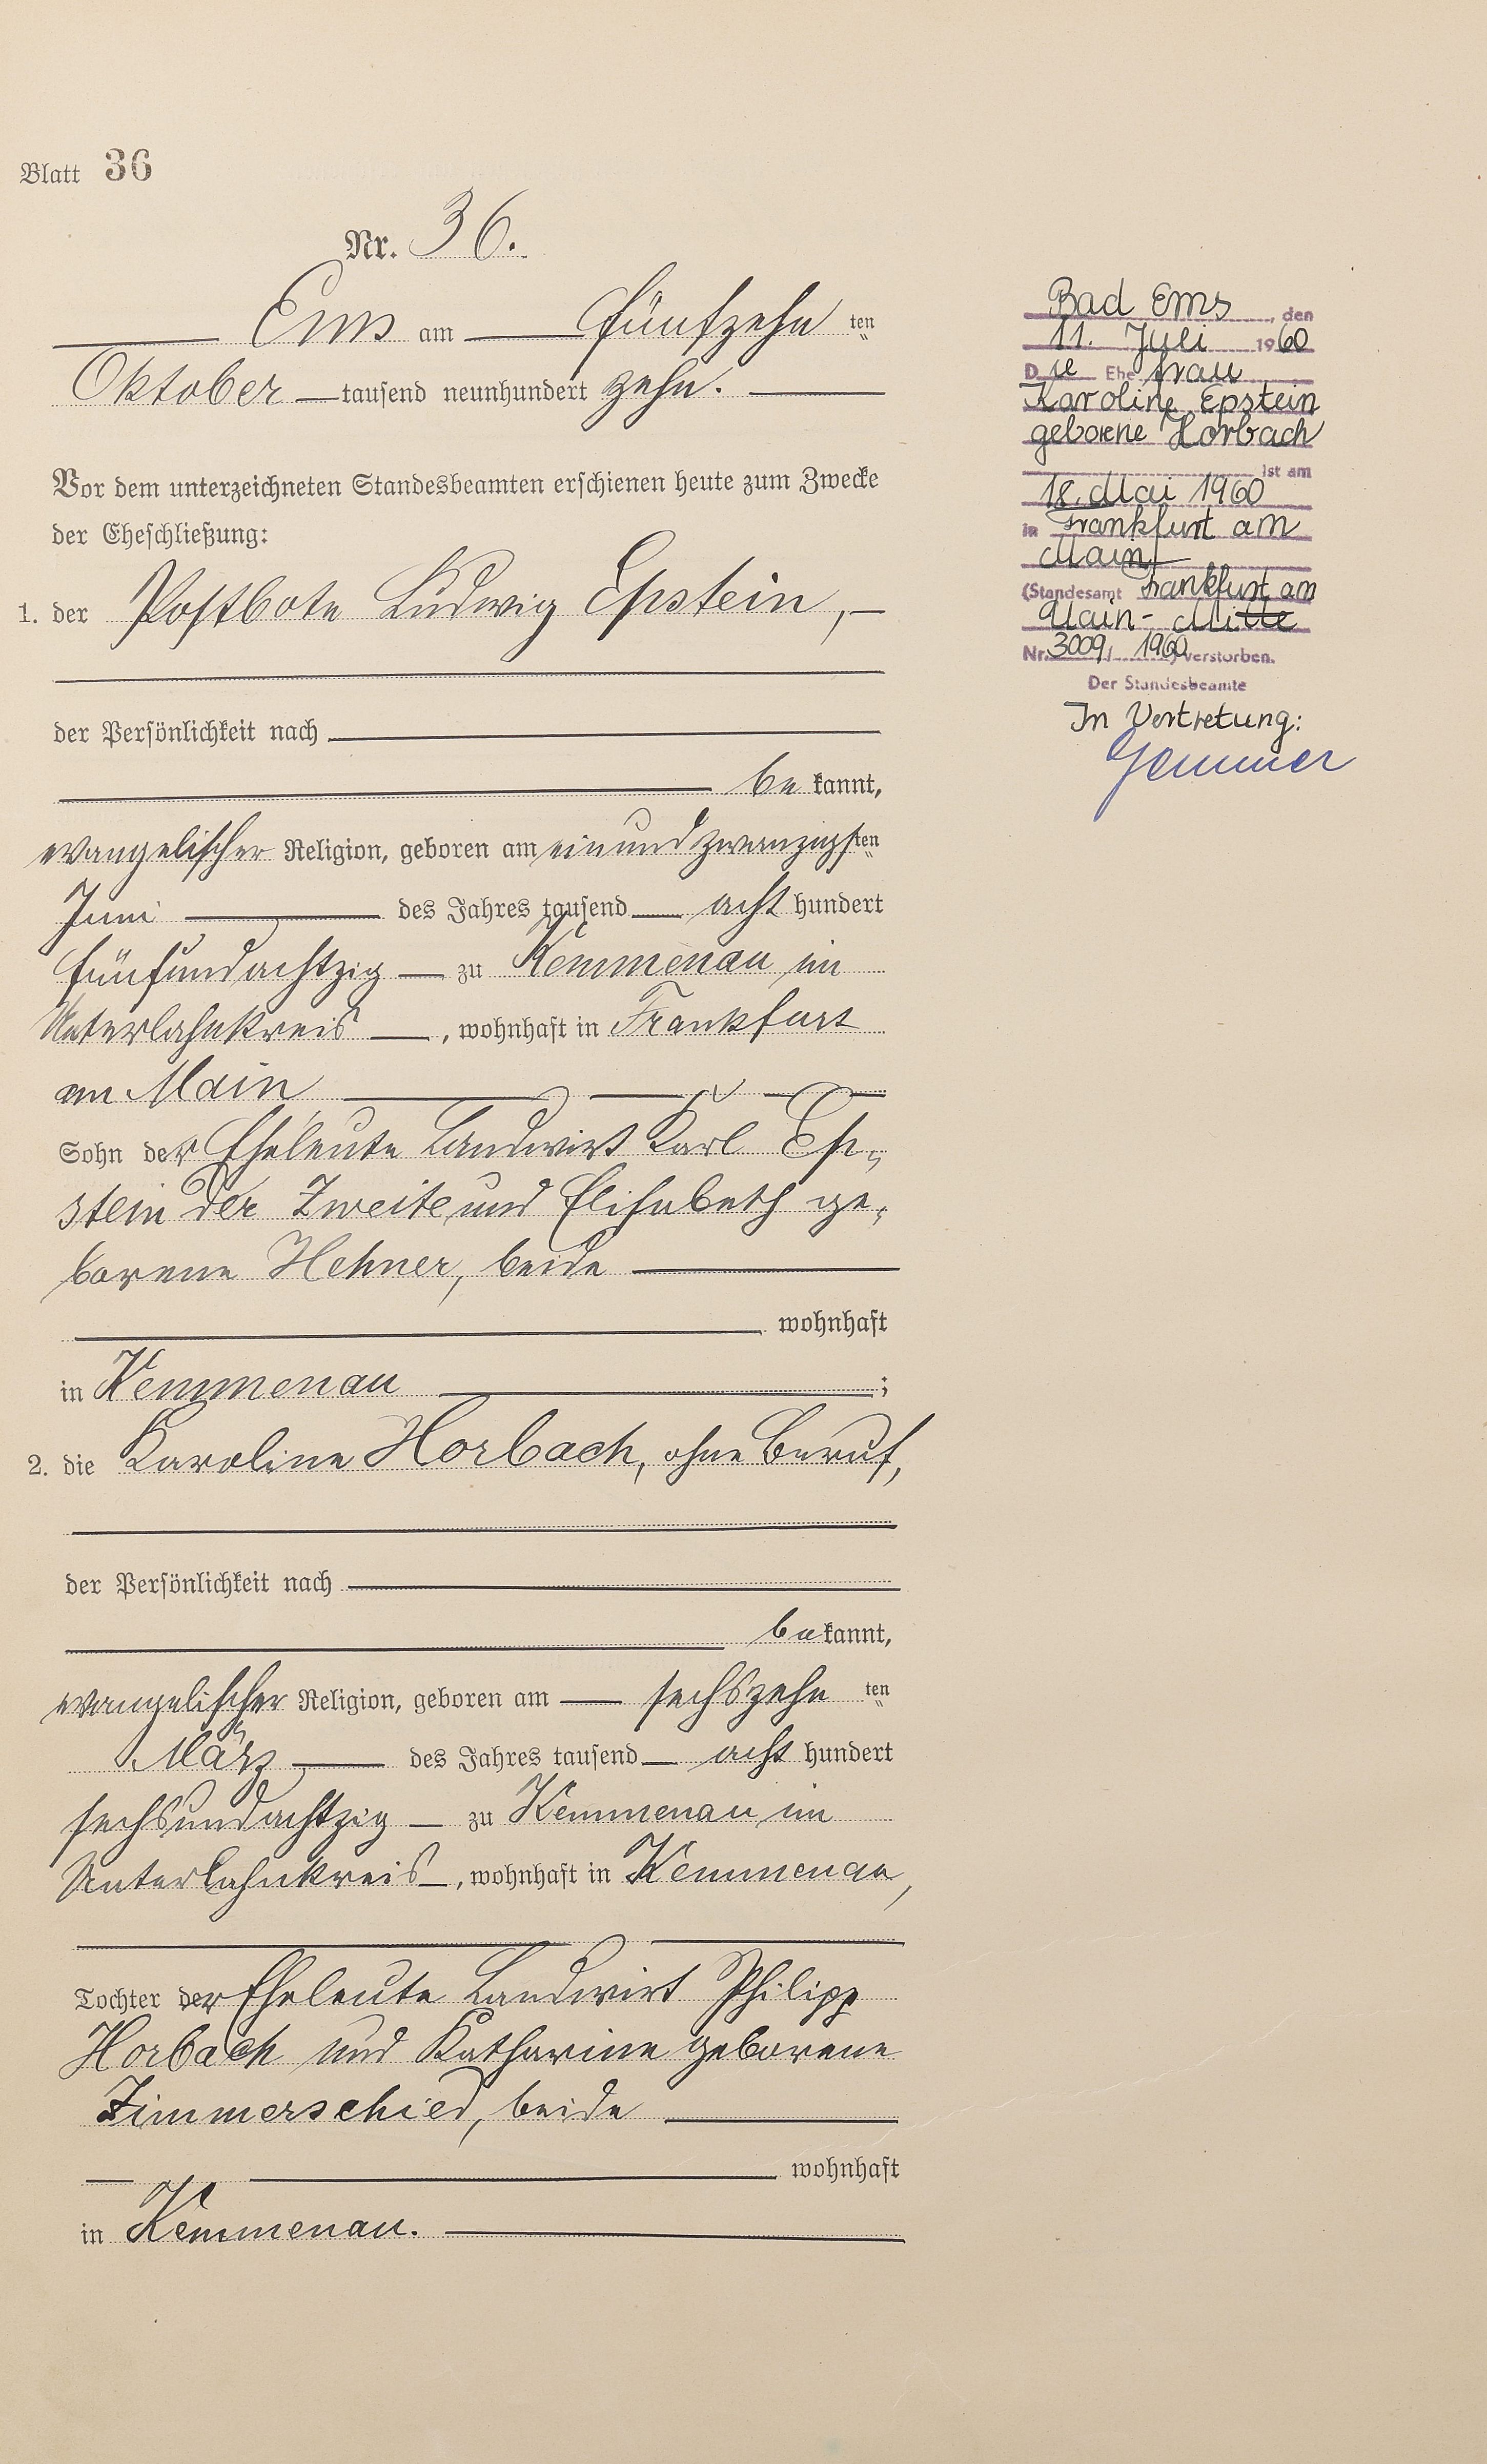 Blatt 36
Nr. 36.
Ems am fünfzehn ten
Oktober tausend neunhundert zehn.
Vor dem unterzeichneten Standesbeamten erschienen heute zum Zwecke
der Eheschließung:
1. der Postbote Ludwig Epstein,
der Persönlichkeit nach
be kannt,
evangelischer Religion, geboren am einundzwanzigsten
Juni des Jahres tausend acht hundert
fünfundachtzig zu Kemmenau im
Unterlahnkreis, wohnhaft in Frankfurt
am Main
Sohn der Eheleute Landwirt Karl Ep-
stein der Zweite und Elisabeth ge-
borene Hehner, beide
wohnhaft
in Kemmenau ;
2. die Karoline Horbach, ohne Beruf,
der Persönlichkeit nach
bekannt,
evangelischer Religion, geboren am sechszehn ten
März des Jahres tausend acht hundert
sechsundachtzig zu Kemmenau im
Unterlahnkreis, wohnhaft in Kemmenau,
Tochter der Eheleute Landwirt Philipp
Horbach und Katharine geborene
Zimmerschied, beide
wohnhaft
in Kemmenau.
Bad Ems, den
11. Juli 1960
Die Ehefrau
Karoline Epstein
geborene Horbach
ist am
18. Mai 1960
in Frankfurt am
Main
(Standesamt Frankfurt am
Main-Mitte
Nr. 3009, 1960) verstorben.
Der Standesbeamte
In Vertretung: